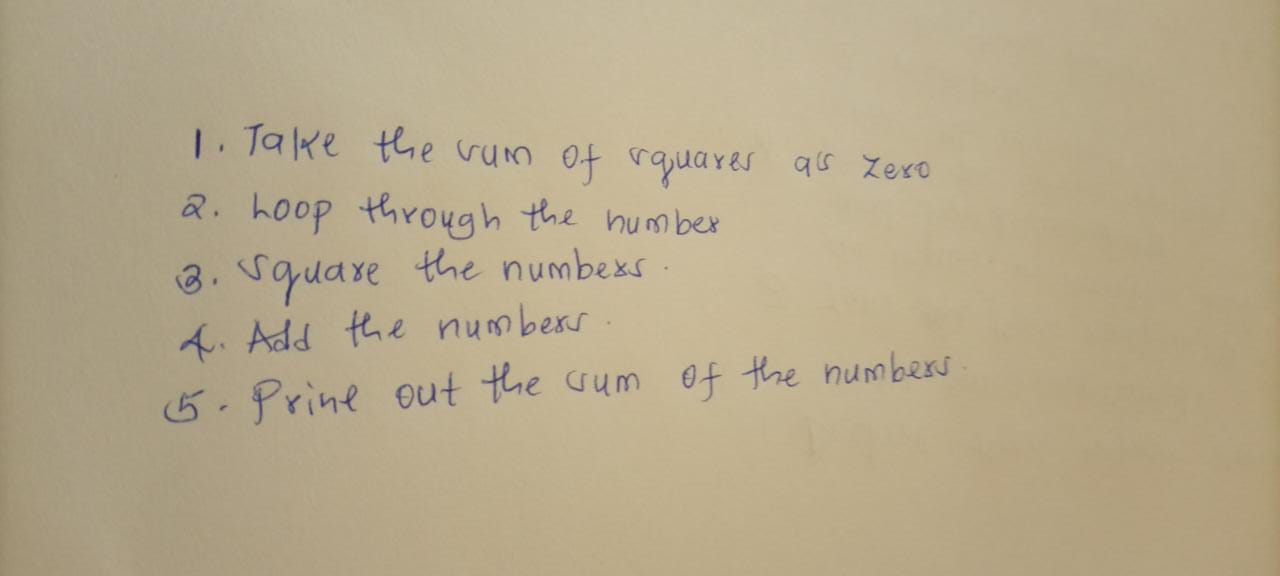 1. Take the sum of squares as zero
2. Loop through the number
3. Square the numbers.
4. Add the numbers.
5. Print out the sum of the numbers.